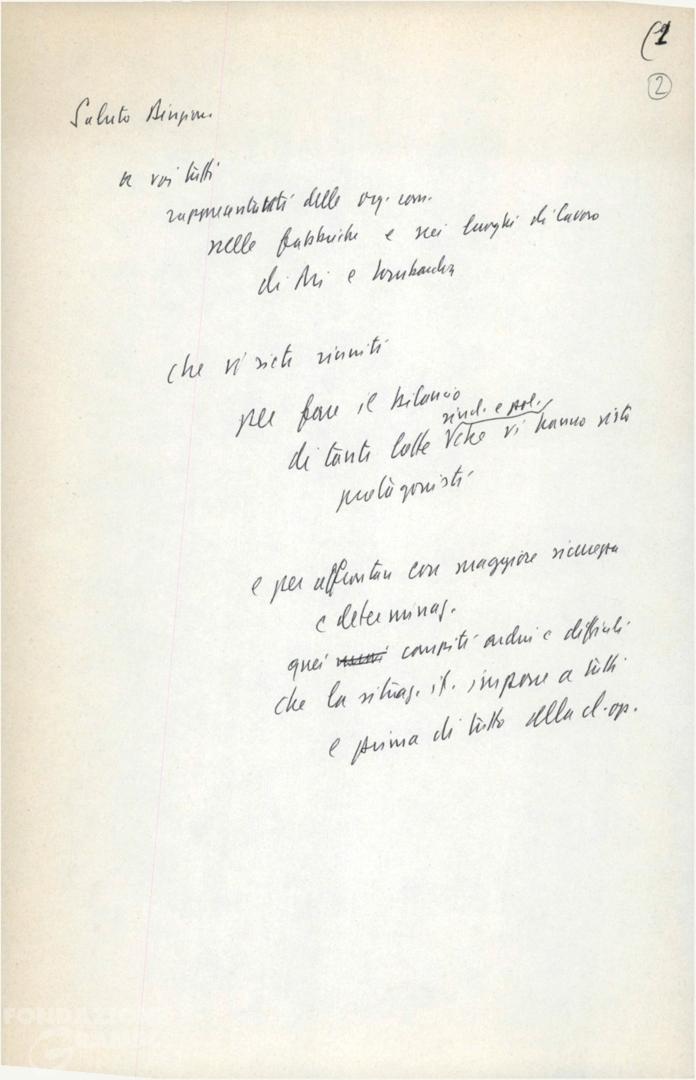 (1
2
Saluto Direzione
a voi tutti
rappresentanti delle org. com.
nelle fabbriche e nei luoghi di lavoro
di Mi e Lombardia
che vi siete riuniti
per fare il bilancio
sind. e pol.
di tante lotte che vi hanno visti
protagonisti
e per affrontare con maggiore sicurezza
e determinaz.
quei compiti ardui e difficili
che la situaz. it. impone a tutti
e prima di tutto alla cl. op.
FONDAZIONE
GRAMSCI